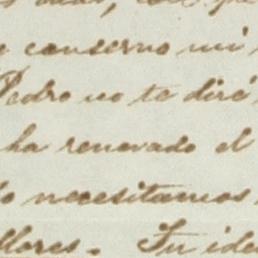 y conservo mi
Pedro no te diré
ha renovado el
lo necesitamos
flores. Tu ide